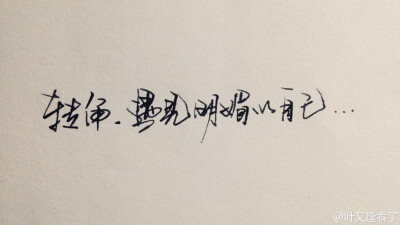 转角.遇见明媚的自己...
@叶又逢春了